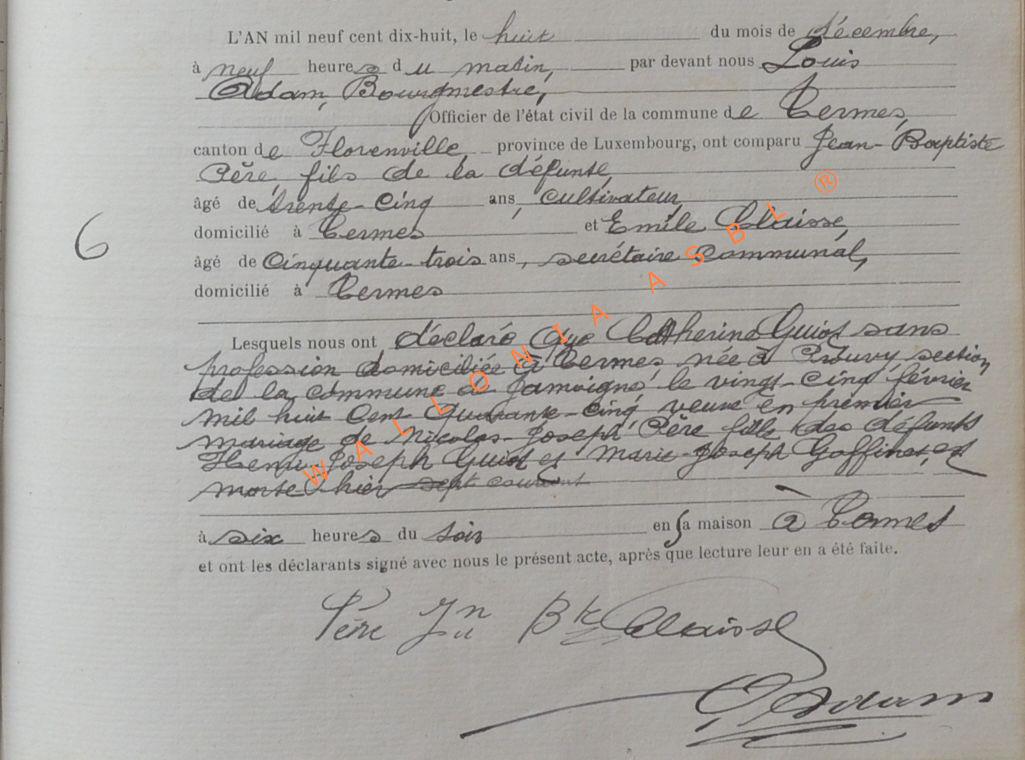 L'AN mil neuf cent dix-huit, le huit du mois de décembre,
à neuf heures du matin, par devant nous Louis
Adam, Bourgmestre,
Officier de l'état civil de la commune de Termes,
canton de Florenville province de Luxembourg, ont comparu Jean-Baptiste
Père, fils de la défunte,
âgé de trente-cinq ans, cultivateur,
domicilié à Termes et Emile Claisse,
6
âgé de cinquante-trois ans, secrétaire communal,
domicilié à Termes
Lesquels nous ont déclaré que Catherine Guiot sans
profession domiciliée à Termes, née à Prouvy section
de la commune de Jamoigne, le vingt-cinq février
mil huit cent quarante-cinq veuve en premier
mariage de Nicolas-Joseph Père fille des défunts
Henri-Joseph Guiot et Marie-Joseph Goffinet, est
morte hier sept courant
à six heures du soir en sa maison à Termes
et ont les déclarants signé avec nous le présent acte, après que lecture leur en a été faite.
Père Jn Bte Claisse
Adam
WALLONIA ASBL ®